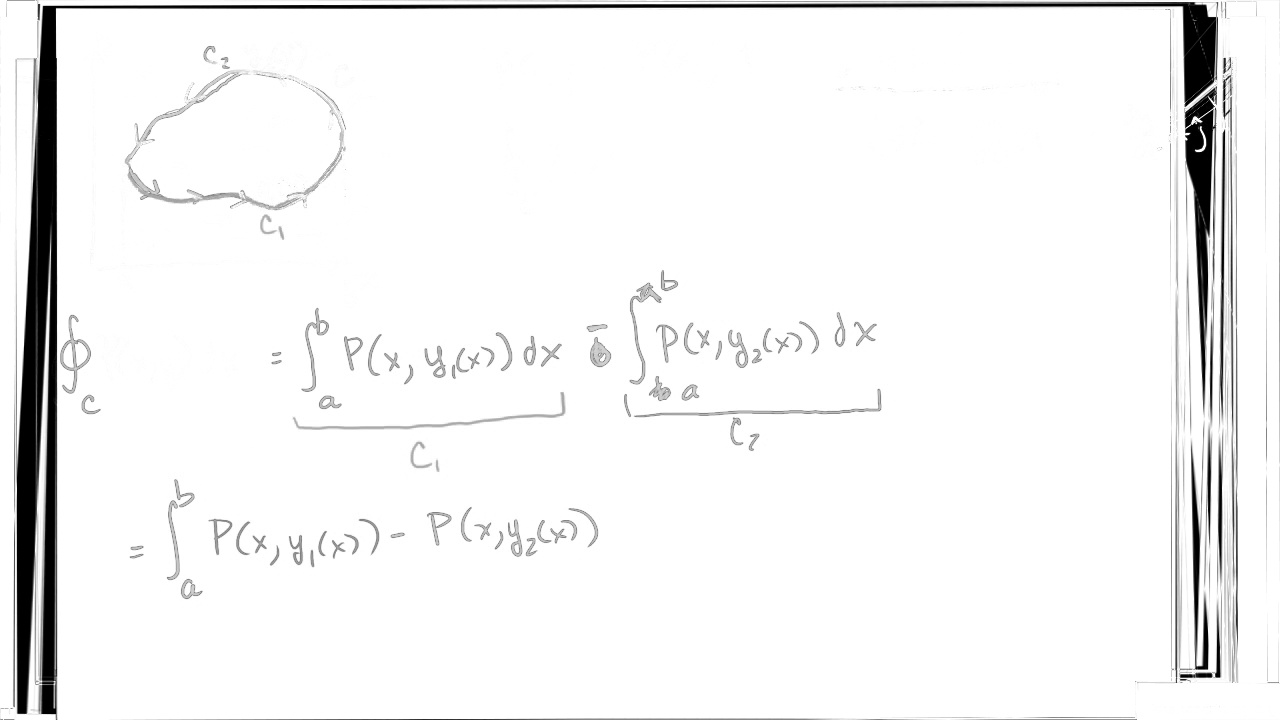 C₂
C₁
∮_C = ∫_a^b P(x, y₁(x)) dx - ∫_a^b P(x, y₂(x)) dx
C₁ C₂
= ∫_a^b P(x, y₁(x)) - P(x, y₂(x))
j